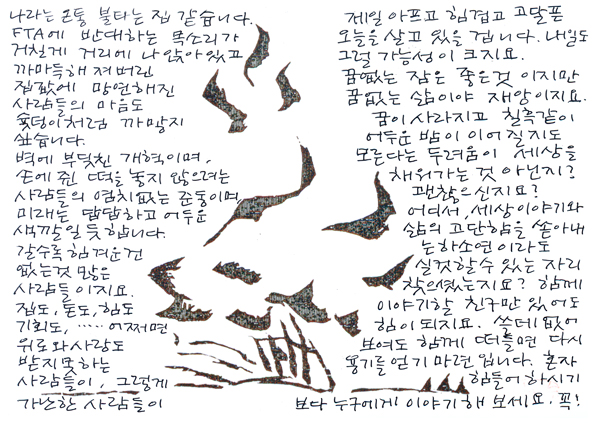 나라는 온통 불타는 집 같습니다.
FTA에 반대하는 목소리가
거칠게 거리에 나 앉아 있고
까마득해 져버린
집값에 망연해진
사람들의 마음도
숯덩이처럼 까맣지
싶습니다.
벽에 부딪친 개혁이며,
손에 쥔 떡을 놓지 않으려는
사람들의 염치없는 준동이며
미래는 답답하고 어두운
색깔일 듯 합니다.
갈수록 힘겨운건
없는것 많은
사람들이지요.
집도, 돈도, 힘도
기회도, ····· 어쩌면
위로와 사랑도
받지 못하는
사람들이, 그렇게
가난한 사람들이
제일 아프고 힘겹고 고달픈
오늘을 살고 있을 겁니다. 내일도
그럴 가능성이 크지요.
꿈없는 잠은 좋은것 이지만
꿈없는 삶이야 재앙이지요.
꿈이 사라지고 칠흑같이
어두운 밤이 이어질지도
모른다는 두려움이 세상을
채워가는 것 아닌지?
괜찮으신지요?
어디서, 세상이야기와
삶의 고단함을 쏟아내
는 하소연이라도
실컷할 수 있는 자리
찾으셨는지요? 함께
이야기할 친구만 있어도
힘이 되지요. 쓸데없어
보여도 함께 떠들면 다시
용기를 얻기 마련입니다. 혼자
힘들어 하시기
보다 누구에게 이야기 해 보세요. 꼭!